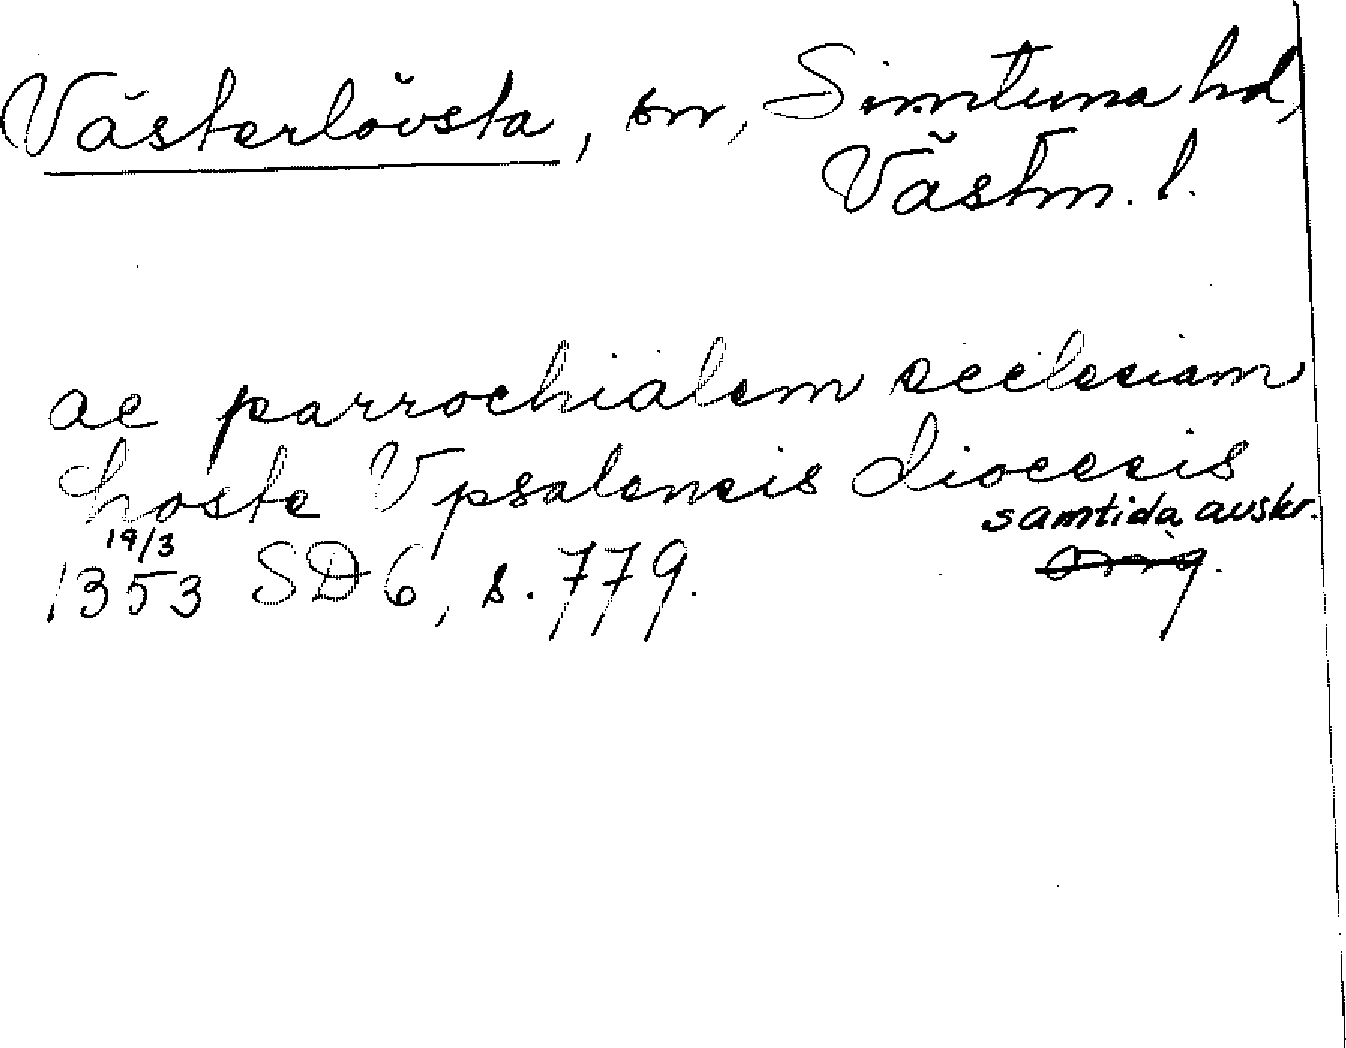 Västerlövsta, sn, Simtuna hd,
Västm. l.
ac parrochialem ecclesiam
hoste Vpsalensis diocecis
samtida avskr.
19/3
1353 SD 6, s. 779. orig.